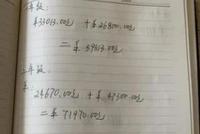 年级:
¥33013.00元 + ¥26800.00元
= ¥ 59813.00元
年级:
24670.00元 + ¥47300.00元
= ¥ 71970.00元